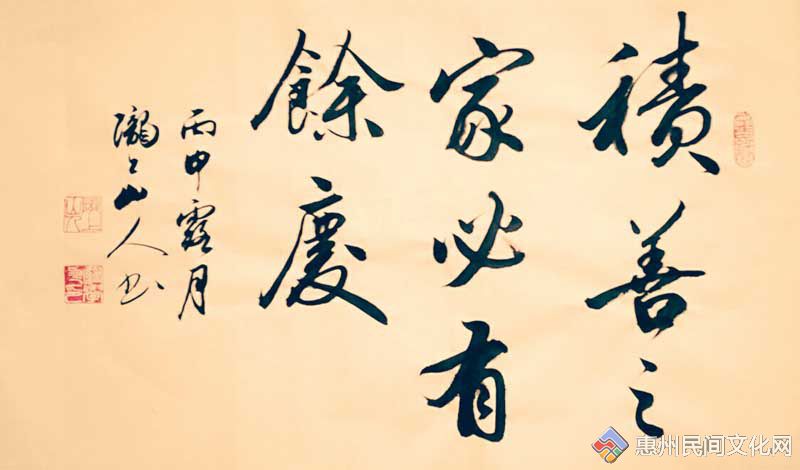 積善之
家必有
餘慶
丙申霜月
隴上山人书
惠州民间文化网